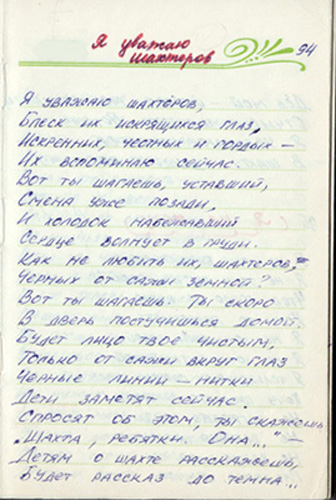 Я уважаю
шахтеров
94
Я УВАЖАЮ ШАХТЁРОВ,
БЛЕСК ИХ ИСКРЯЩИХСЯ ГЛАЗ,
ИСКРЕННИХ, ЧЕСТНЫХ И ГОРДЫХ –
ИХ ВСПОМИНАЮ СЕЙЧАС.
ВОТ ТЫ ШАГАЕШЬ, УСТАВШИЙ,
СМЕНА УЖЕ ПОЗАДИ,
И ХОЛОДОК НАБЕЖАВШИЙ
СЕРДЦЕ ВОЛНУЕТ В ГРУДИ.
КАК НЕ ЛЮБИТЬ ИХ, ШАХТЕРОВ,
ЧЕРНЫХ ОТ САЖИ ЗЕМНОЙ?
ВОТ ТЫ ШАГАЕШЬ. ТЫ СКОРО
В ДВЕРЬ ПОСТУЧИШЬСЯ ДОМОЙ.
БУДЕТ ЛИЦО ТВОЕ ЧИСТЫМ,
ТОЛЬКО ОТ САЖИ ВКРУГ ГЛАЗ
ЧЕРНЫЕ ЛИНИИ – НИТКИ
ДЕТИ ЗАМЕТЯТ СЕЙЧАС.
СПРОСЯТ ОБ ЭТОМ, ТЫ СКАЖЕШЬ
„ШАХТА, РЕБЯТКИ. ОНА..." –
ДЕТЯМ О ШАХТЕ РАССКАЖЕШЬ,
БУДЕТ РАССКАЗ ДО ТЕМНА..